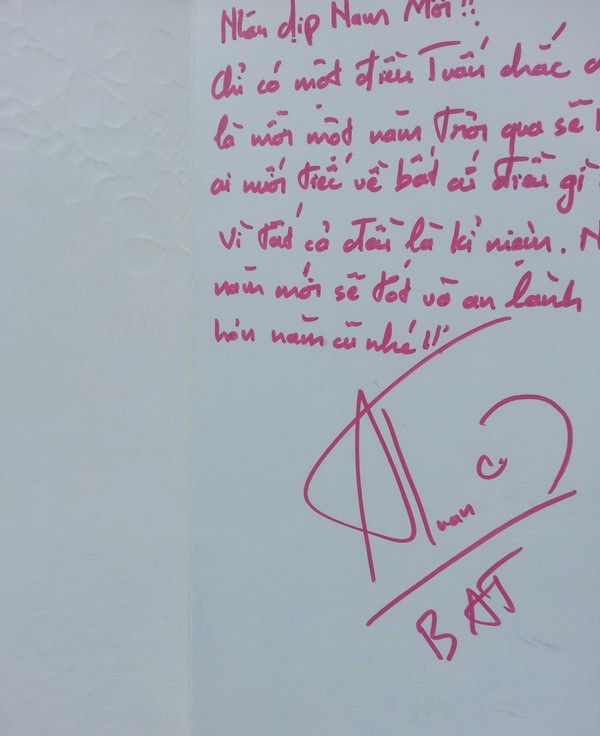 Nhân dịp Năm Mới!!
Chỉ có một điều Tuấn chắc
là mỗi một năm trôi qua sẽ
ai nuối tiếc về bất cứ điều gì
vì tất cả đều là kỉ niệm. N
năm mới sẽ tốt và an lành
hơn năm cũ nhé!!
BAT